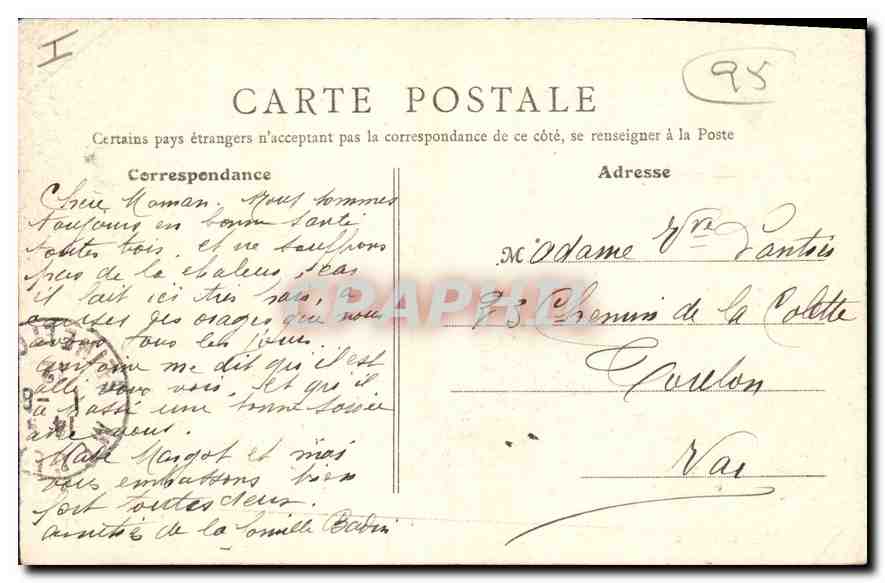 I
95
CARTE POSTALE
Certains pays étrangers n'acceptant pas la correspondance de ce côté, se renseigner à la Poste
Correspondance
Adresse
Chère Maman. Nous sommes
toujours en bonne santé
toutes trois, et ne souffrons
pas de la chaleur, car
il fait ici très bon, a
causes des orages que nous
avons tous les jours.
me dit qu'il est
allé vous voir, et qu'il
a passé une bonne soirée
avec vous.
Margot et moi
vous embrassons bien
fort toutes deux
amitiés de la famille Badin
Madame Vve
23 Chemin de la Colette
Toulon
Var
CRAPHD